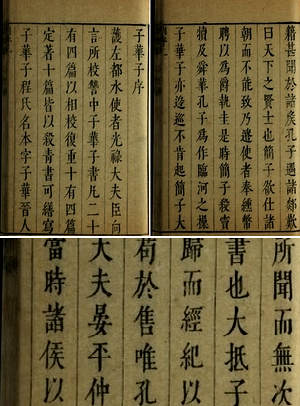 子華子序
護左都水使者光祿大夫臣向
言所校讎中子華子書凡二十
有四篇以相校復重十有四篇
定著十篇皆以殺青書可繕寫
子華子程氏名本字子華晉人
籍甚聞於諸矦孔子遇諸郯歎
曰天下之賢士也簡子欲仕諸
朝而不能致乃遣使者奉纁幣
聘以爲爵執圭是時簡子殺竇
犢及舜華孔子爲作臨河之操
子華子亦逡巡不肯起簡子大
所聞而無次
書也大抵子
歸而經紀以
苟於售唯孔
大夫晏平仲
當時諸侯以